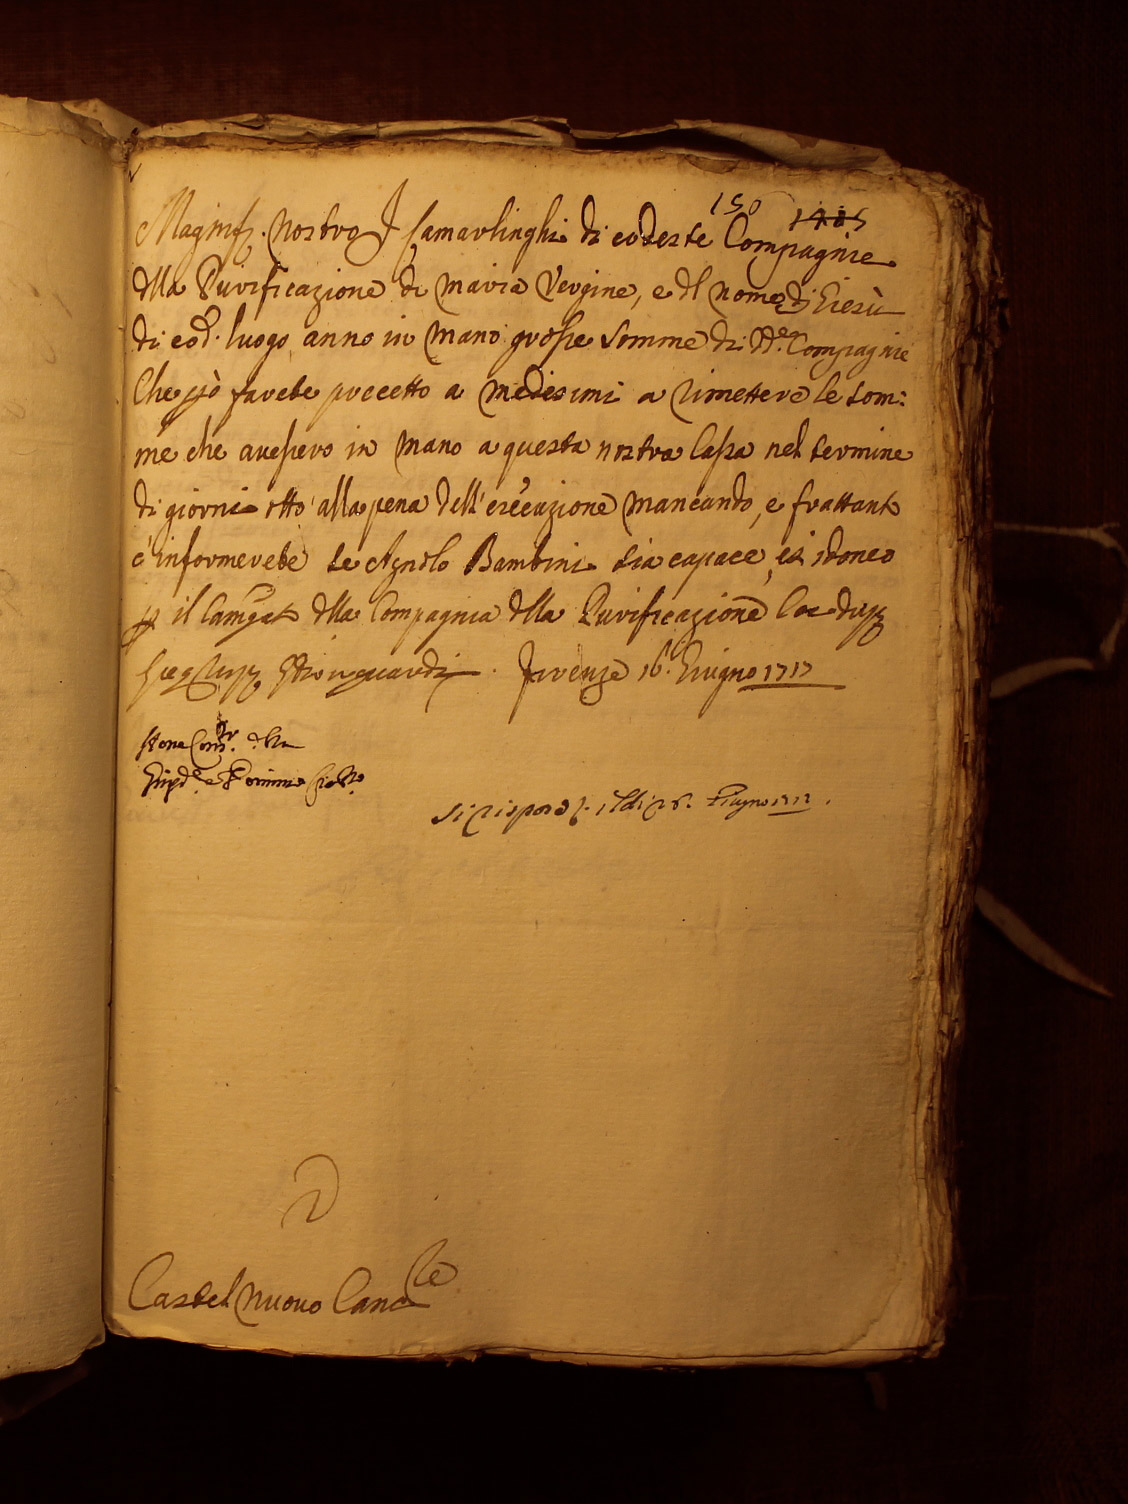 150
Magnif. nostro I Camarlinghi di codeste Compagnie
dlla Purificazione di Maria Vergine, e dl nome di Giesù
di cod. luogo anno in mano grosse somme di dd.e Compagnie
Che però farete precetto a medesimi a rimettere le som:
me che avessero in mano a questa nostra Cassa nel termine
di giorni otto alla pena dell'esecuzione mancando, e frattant.o
c'informerete se Agnolo Bambini sia capace, et idoneo
p il Camgato dlla Compagnia dlla Purificazione
Firenze 16. Giugno 1717
si rispose
Giugno 1717.
Castel nuovo Canc.le